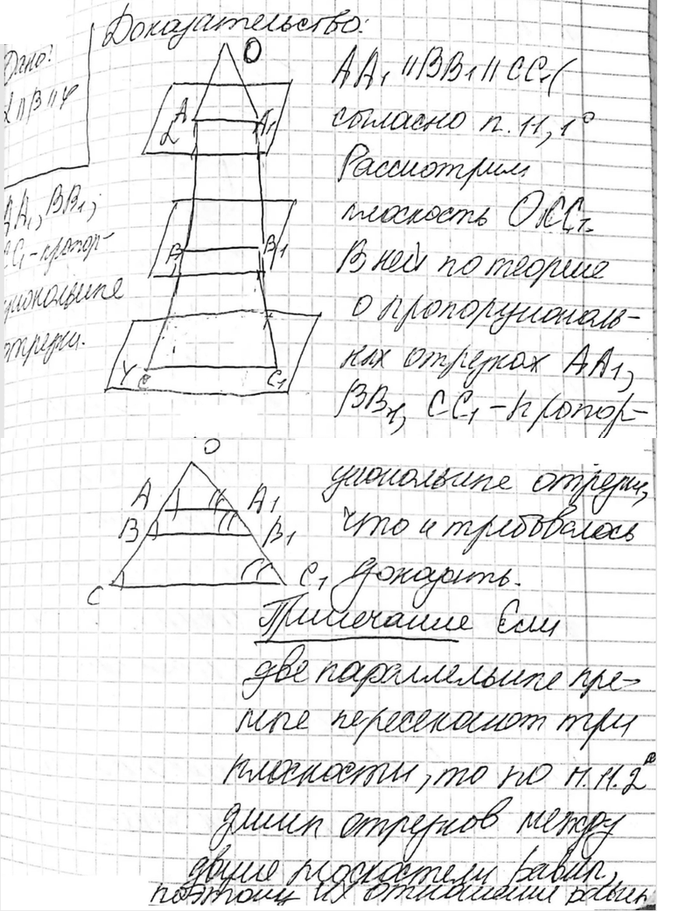 Доказательство:
Дано:
α || β || γ
AA₁, BB₁,
CC₁ - пропор-
циональные
отрезки.
O
A
A₁
α
B
B₁
γ
C
C₁
AA₁ || BB₁ || CC₁ (
согласно п. 11, 1°
Рассмотрим
плоскость OCC₁.
В ней по теореме
о пропорциональ-
ных отрезках AA₁,
BB₁, CC₁ - пропор-
O
A
A₁
B
B₁
C
C₁
циональные отрезки,
что и требовалось
доказать.
Примечание Если
две параллельные пря-
мые пересекают три
плоскости, то по п.11.2°
длины отрезков между
двумя плоскостями равны,
поэтому их отношения равны